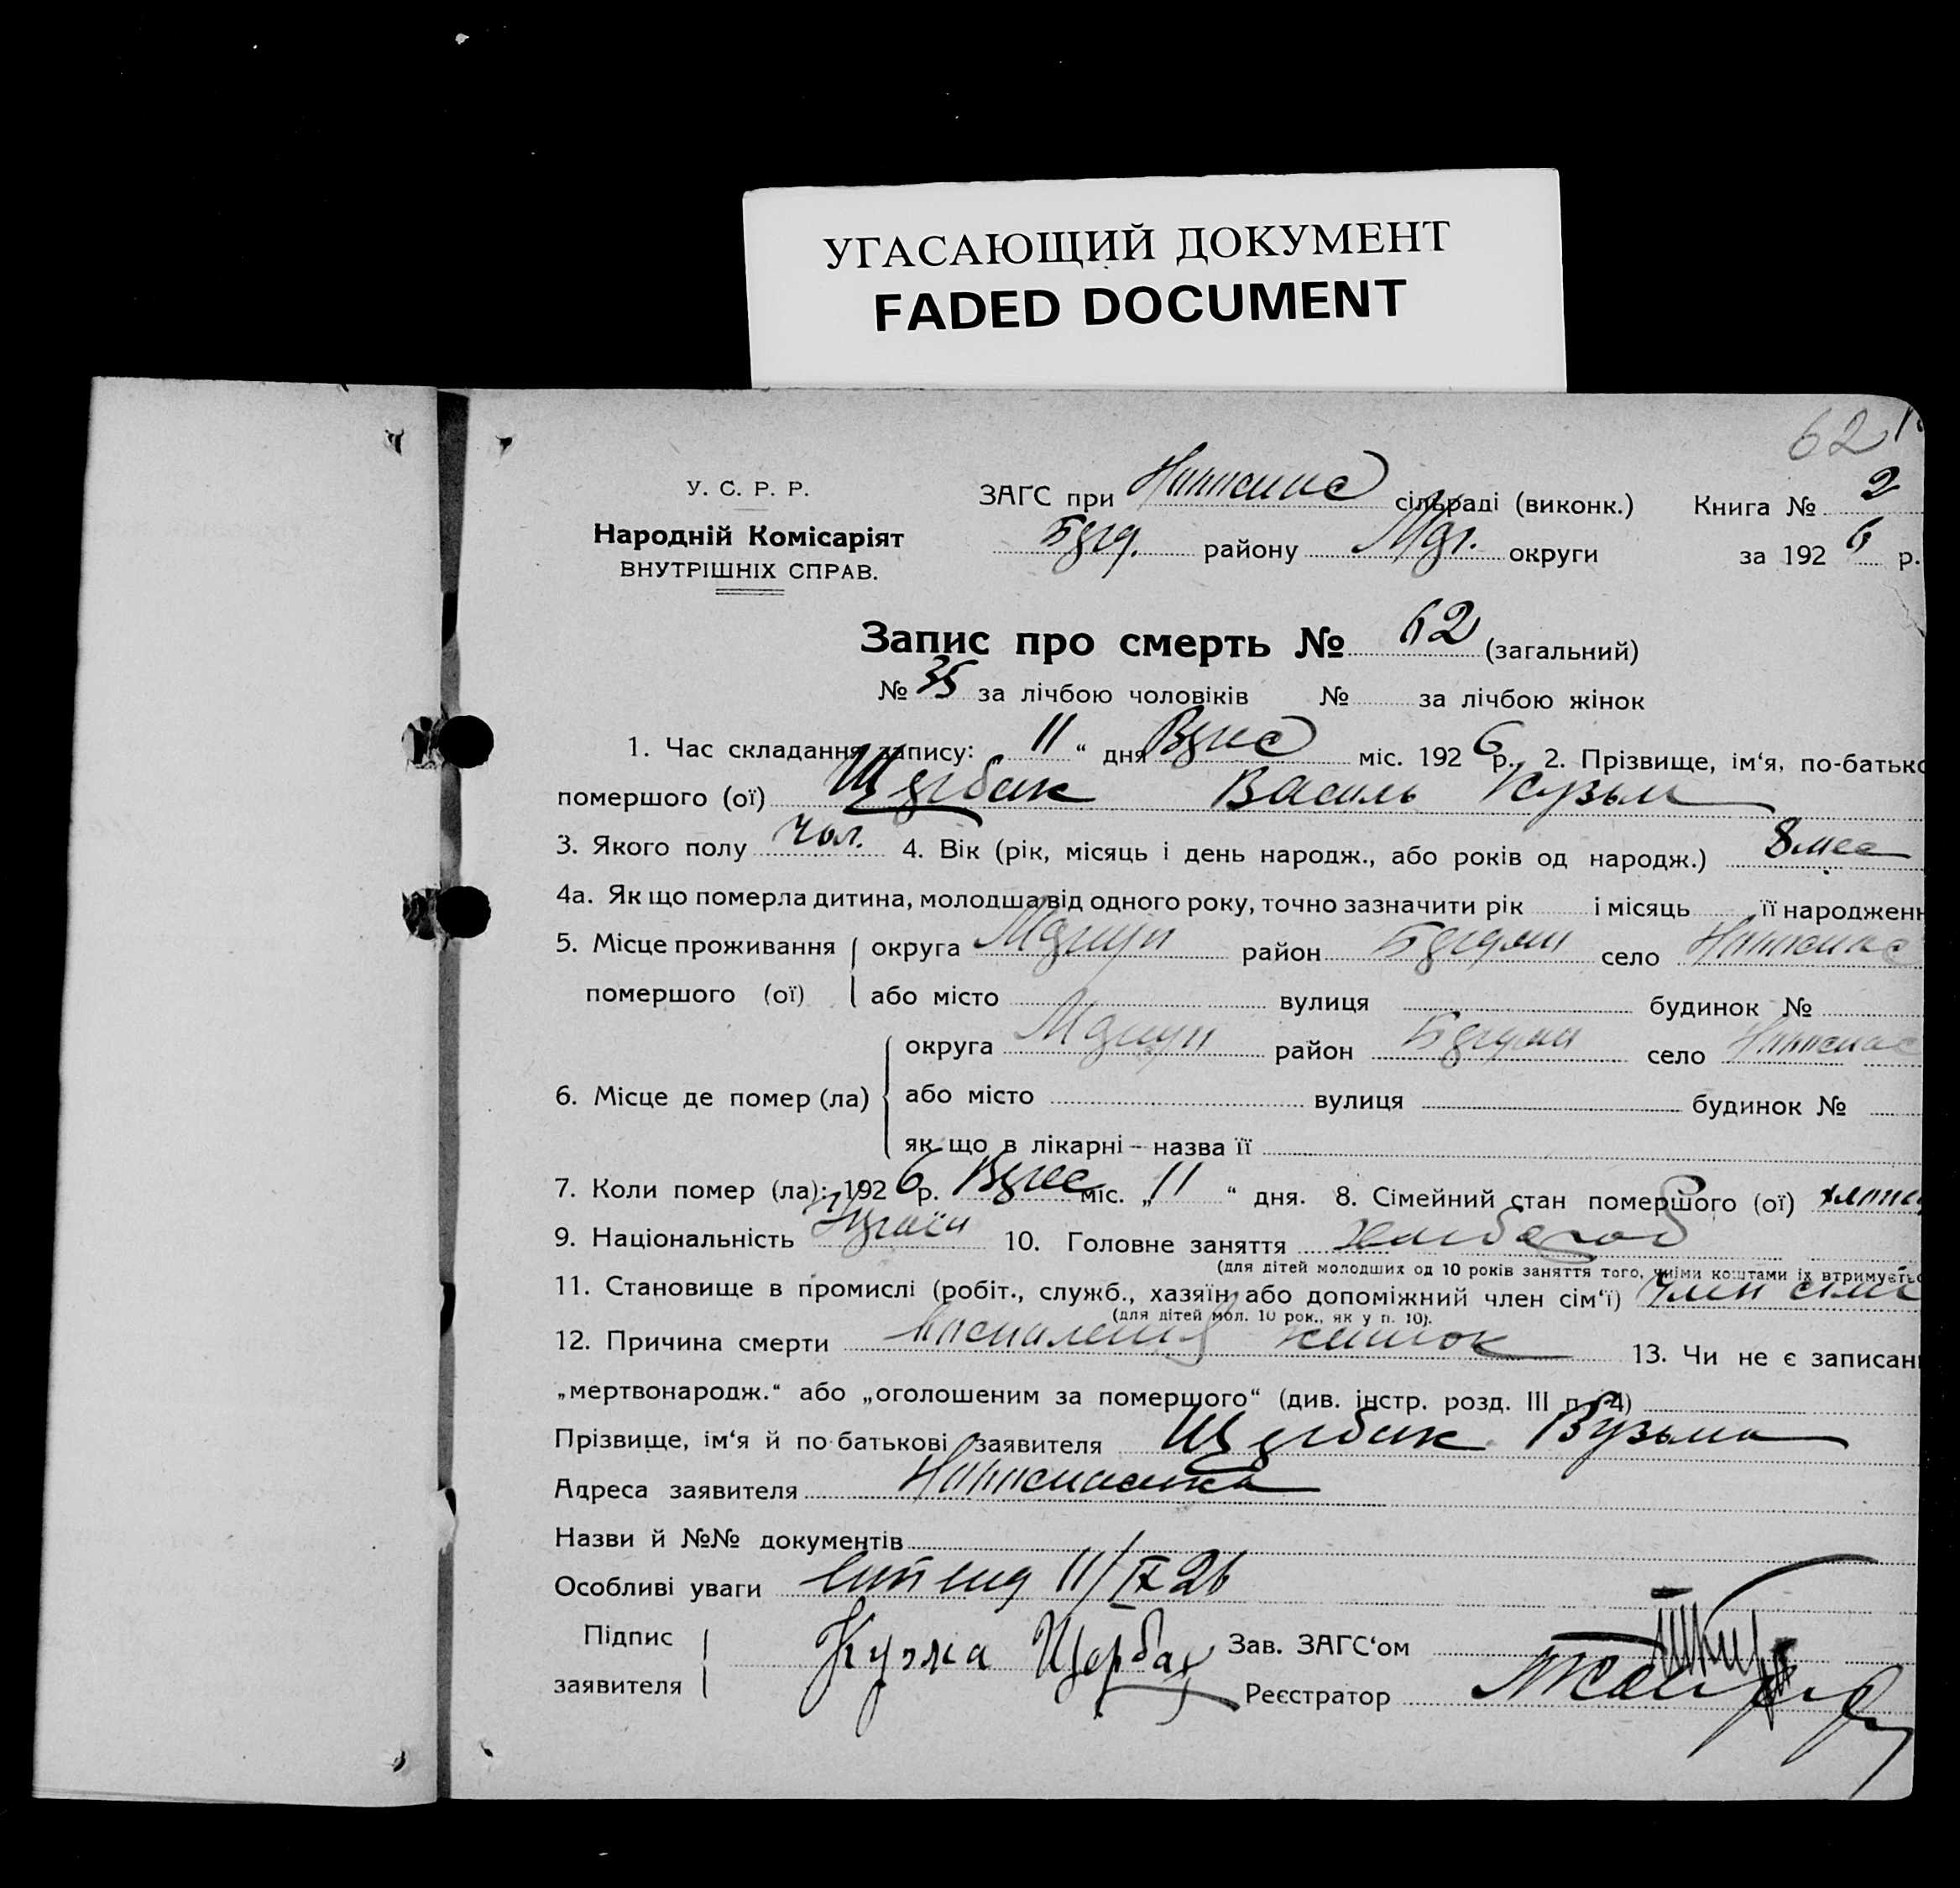 УГАСАЮЩИЙ ДОКУМЕНТ
FADED DOCUMENT
62
У. С. Р. Р.
Народній Комісаріят
ВНУТРІШНІХ СПРАВ.
ЗАГС при сільраді (виконк.) Книга № 2
району округи за 1926 р.
Запис про смерть № 62 (загальний)
№ 35 за лічбою чоловіків № за лічбою жінок
1. Час складання запису: „ 11 “ дня міс. 1926 р. 2. Прізвище, ім‘я, по-батько
помершого (ої) Щербак Василь Кузьм
3. Якого полу чол. 4. Вік (рік, місяць і день народж., або років од народж.) 8 мес
4а. Як що померла дитина, молодша від одного року, точно зазначити рік і місяць її народженн
5. Місце проживання округа район село
помершого (ої) або місто вулиця будинок №
округа район село
6. Місце де помер (ла) або місто вулиця будинок №
як що в лікарні – назва її
7. Коли помер (ла): 1926 р. міс. „ 11 “ дня. 8. Сімейний стан помершого (ої)
9. Національність 10. Головне заняття
(для дітей молодших од 10 років заняття того, чиїми коштами їх втримуєтьс
11. Становище в промислі (робіт., служб., хазяїн або допоміжний член сім‘ї) член сім
(для дітей мол. 10 рок., як у п. 10).
12. Причина смерти кишок 13. Чи не є записан
„мертвонародж.“ або „оголошеним за помершого“ (див. інстр. розд. III п. 4)
Прізвище, ім‘я й по батькові заявителя Щербак Кузьма
Адреса заявителя
Назви й №№ документів
Особливі уваги 11/IX 26
Підпис Кузма Щербак Зав. ЗАГС‘ом
заявителя Реєстратор